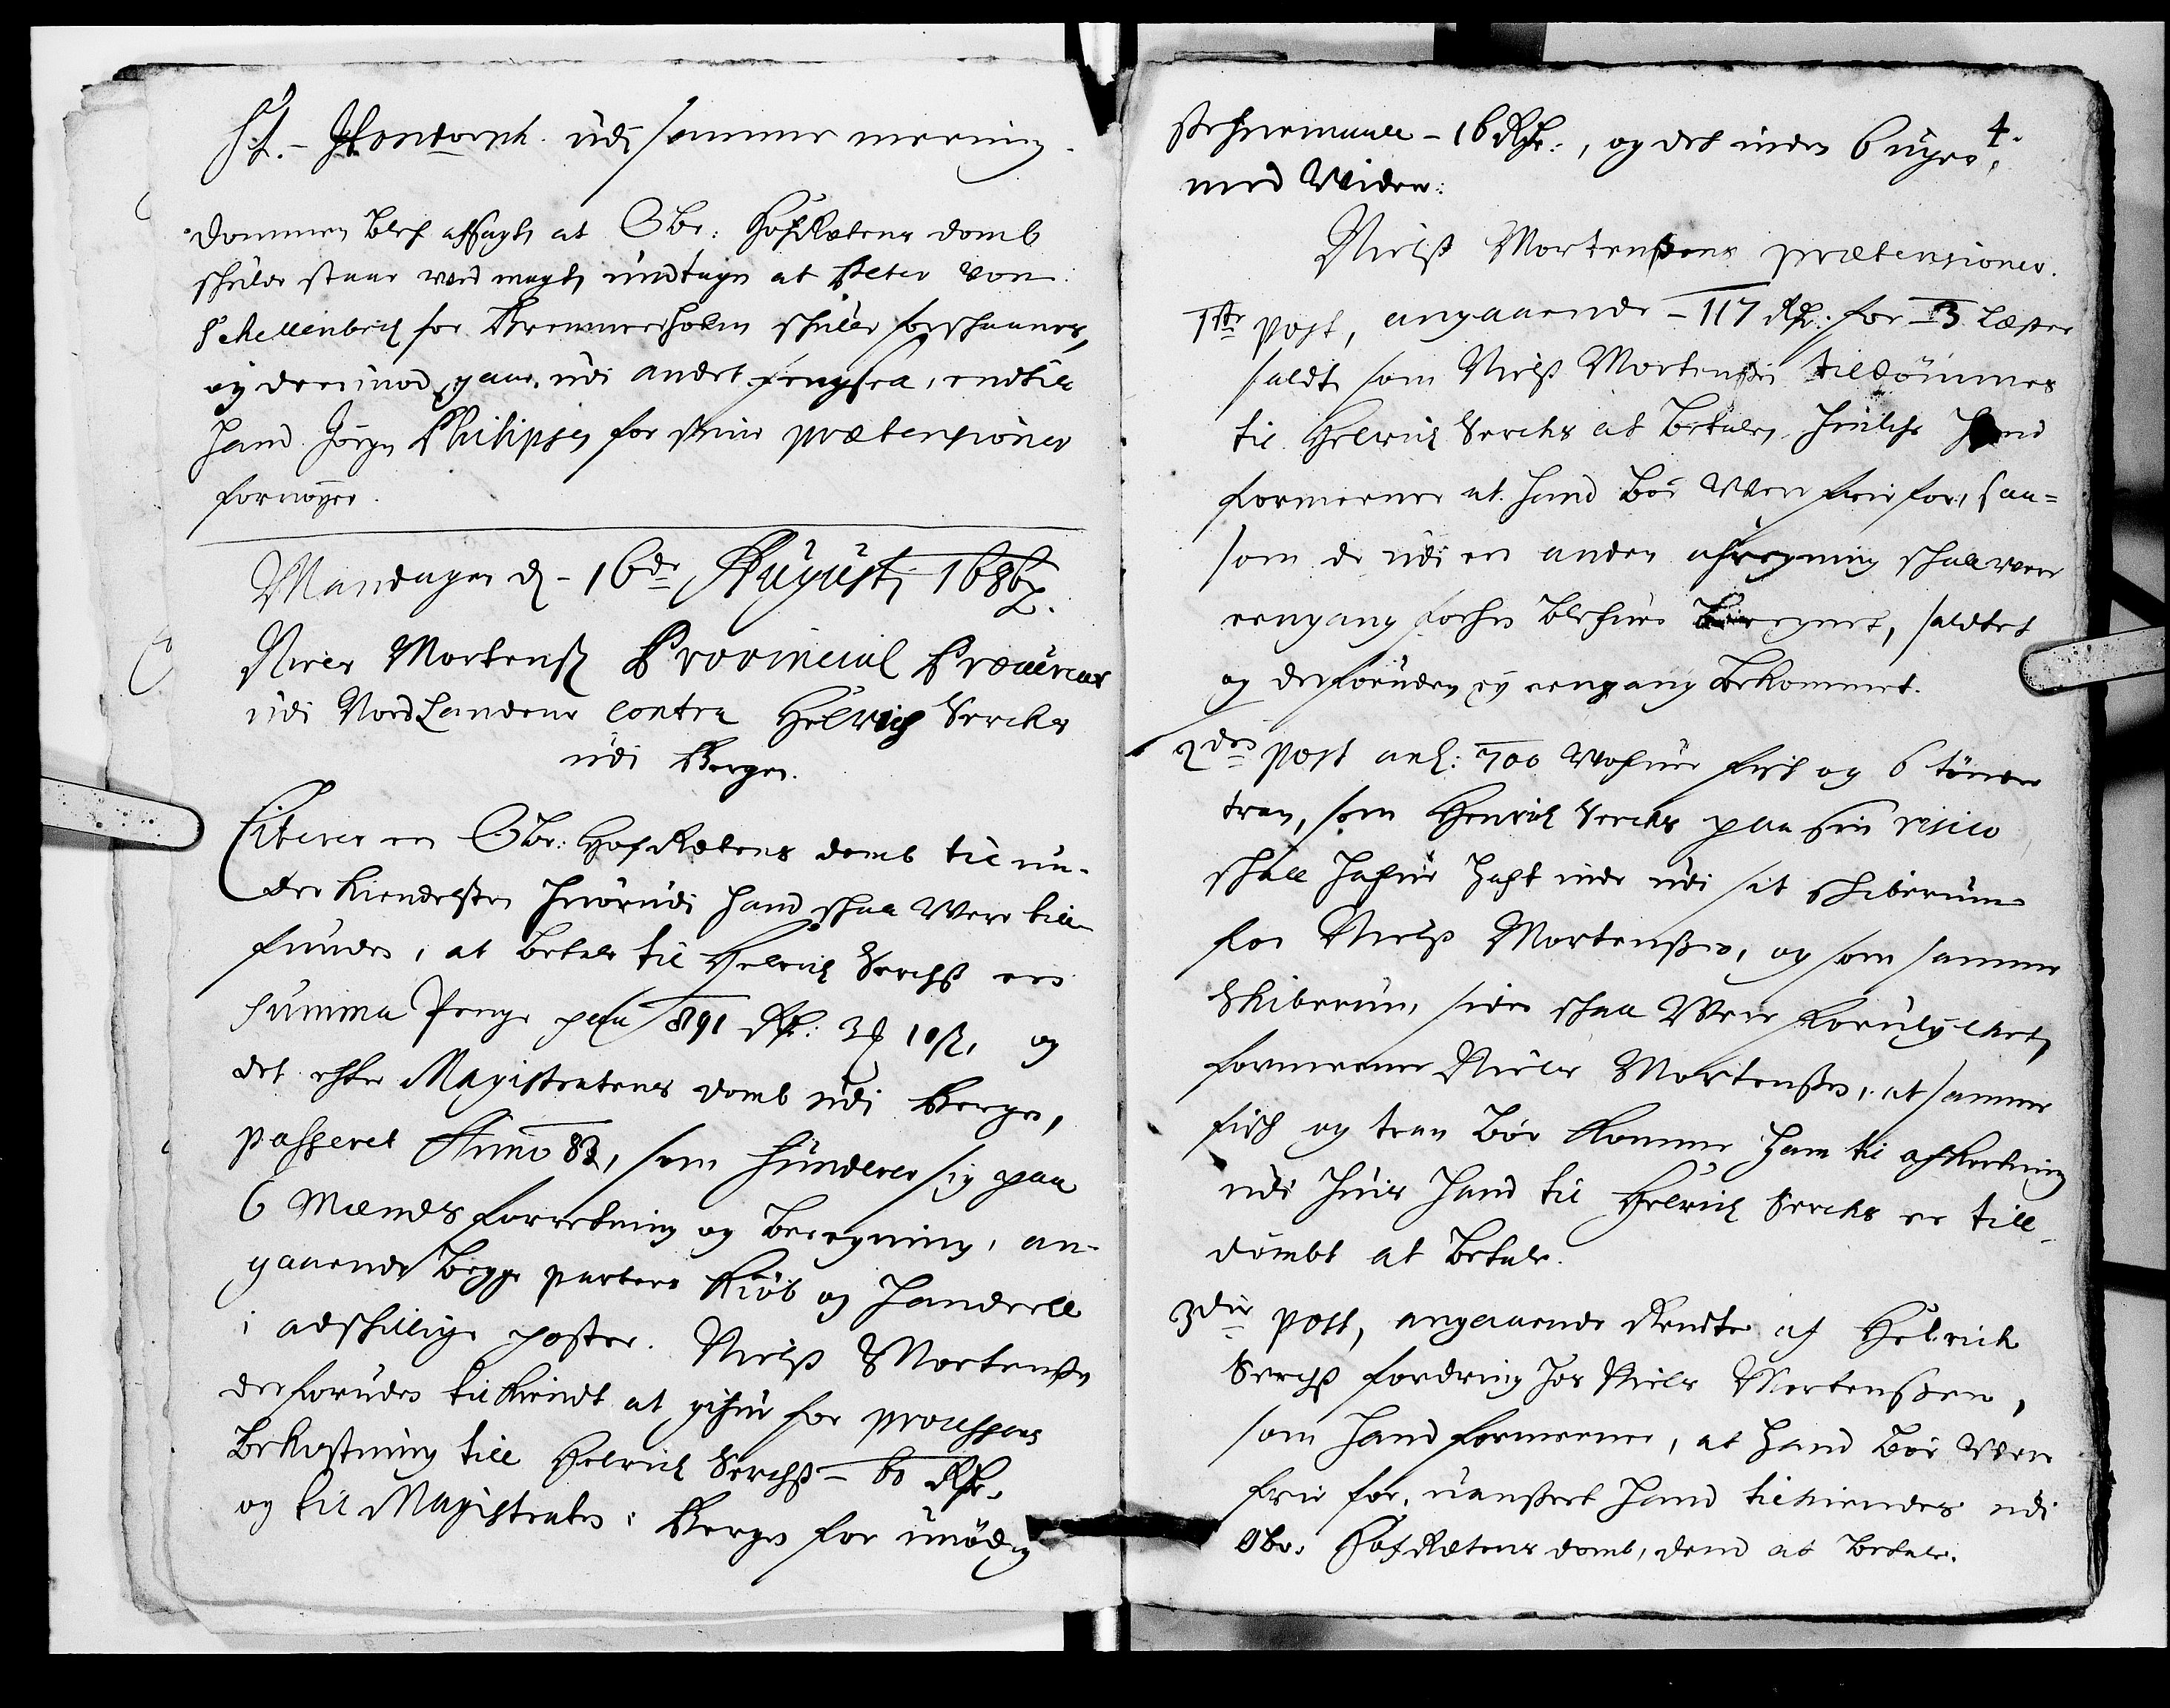 H. Hondorph udi samme meening.
Dommen blef afsagt, at Obr: HofRetens domb
schulde staae ved magt, undtagen at Peter von
Schellenbech for Bremmerholm schulle forschaanes,
og derimod gaae udi andet fengsel, indtill
hand Jörgen Philipsen for sine prætensioner
fornöyer.
Mandagen d. 16de Augusti 1686.
Niels Mortensen Provincial Procureur
udi NordLandene contra Helrich Sercks
udi Bergen.
Citerer en Obr: HofRetens domb til un-
der kiendelsen hvorudi hand schal Vere till
funden, at betale til Helrich Serchs en
Summa Penge paa 891 Rdr: 3 10 s, og
det efter Magistratens domb udi Bergen,
passeret Anno 83, som funderer sig paa
6 Mænds forretning og beregning, an-
gaaende begge parters Kiöb og handell
i adschillige poster. Niels Mortensen
derforuden tilkiendt at gifve for processens
bekostning till Helrich Serchs 60 Rdr.
og til Magistraten i Bergen for unödig
4.
16 Rdr:, og det inden 6 uger
med Widere:
Niels Mortensens prætensioner.
1ste post, angaaende 117 Rdr. for 3 Læster
saldt som Niels Mortensen tildömmes
til Helrich Sercks at betale, huilche hand
formeener at hand bör Were frie for, saa-
som de udi en anden afregning schal vere
eengang forhen blefven beregnet, saldtet
og derforuden ey eengang bekommet.
2den post anl: 700 Woger fisch og 6 tönder
tran, som Henrich Sercks paa sin risico
schall hafve haft inde udi sit schiberum
for Niels Mortensen, og som samme
Schiberum siden schal Were forulychet,
formeener Niels Mortensen, at samme
fisch og tran bör komme ham til afkortning
udi huis hand til Helrich Sercks er till-
dömbt at betale.
3die post, angaaende Rendte af Helrich
Serchs fordring hos Niels Mortensen,
som hand formeener, at hand bör Vere
frie for, uanseet hand tilkiendes udi
Obr. HofRetens domb, dend at betale.